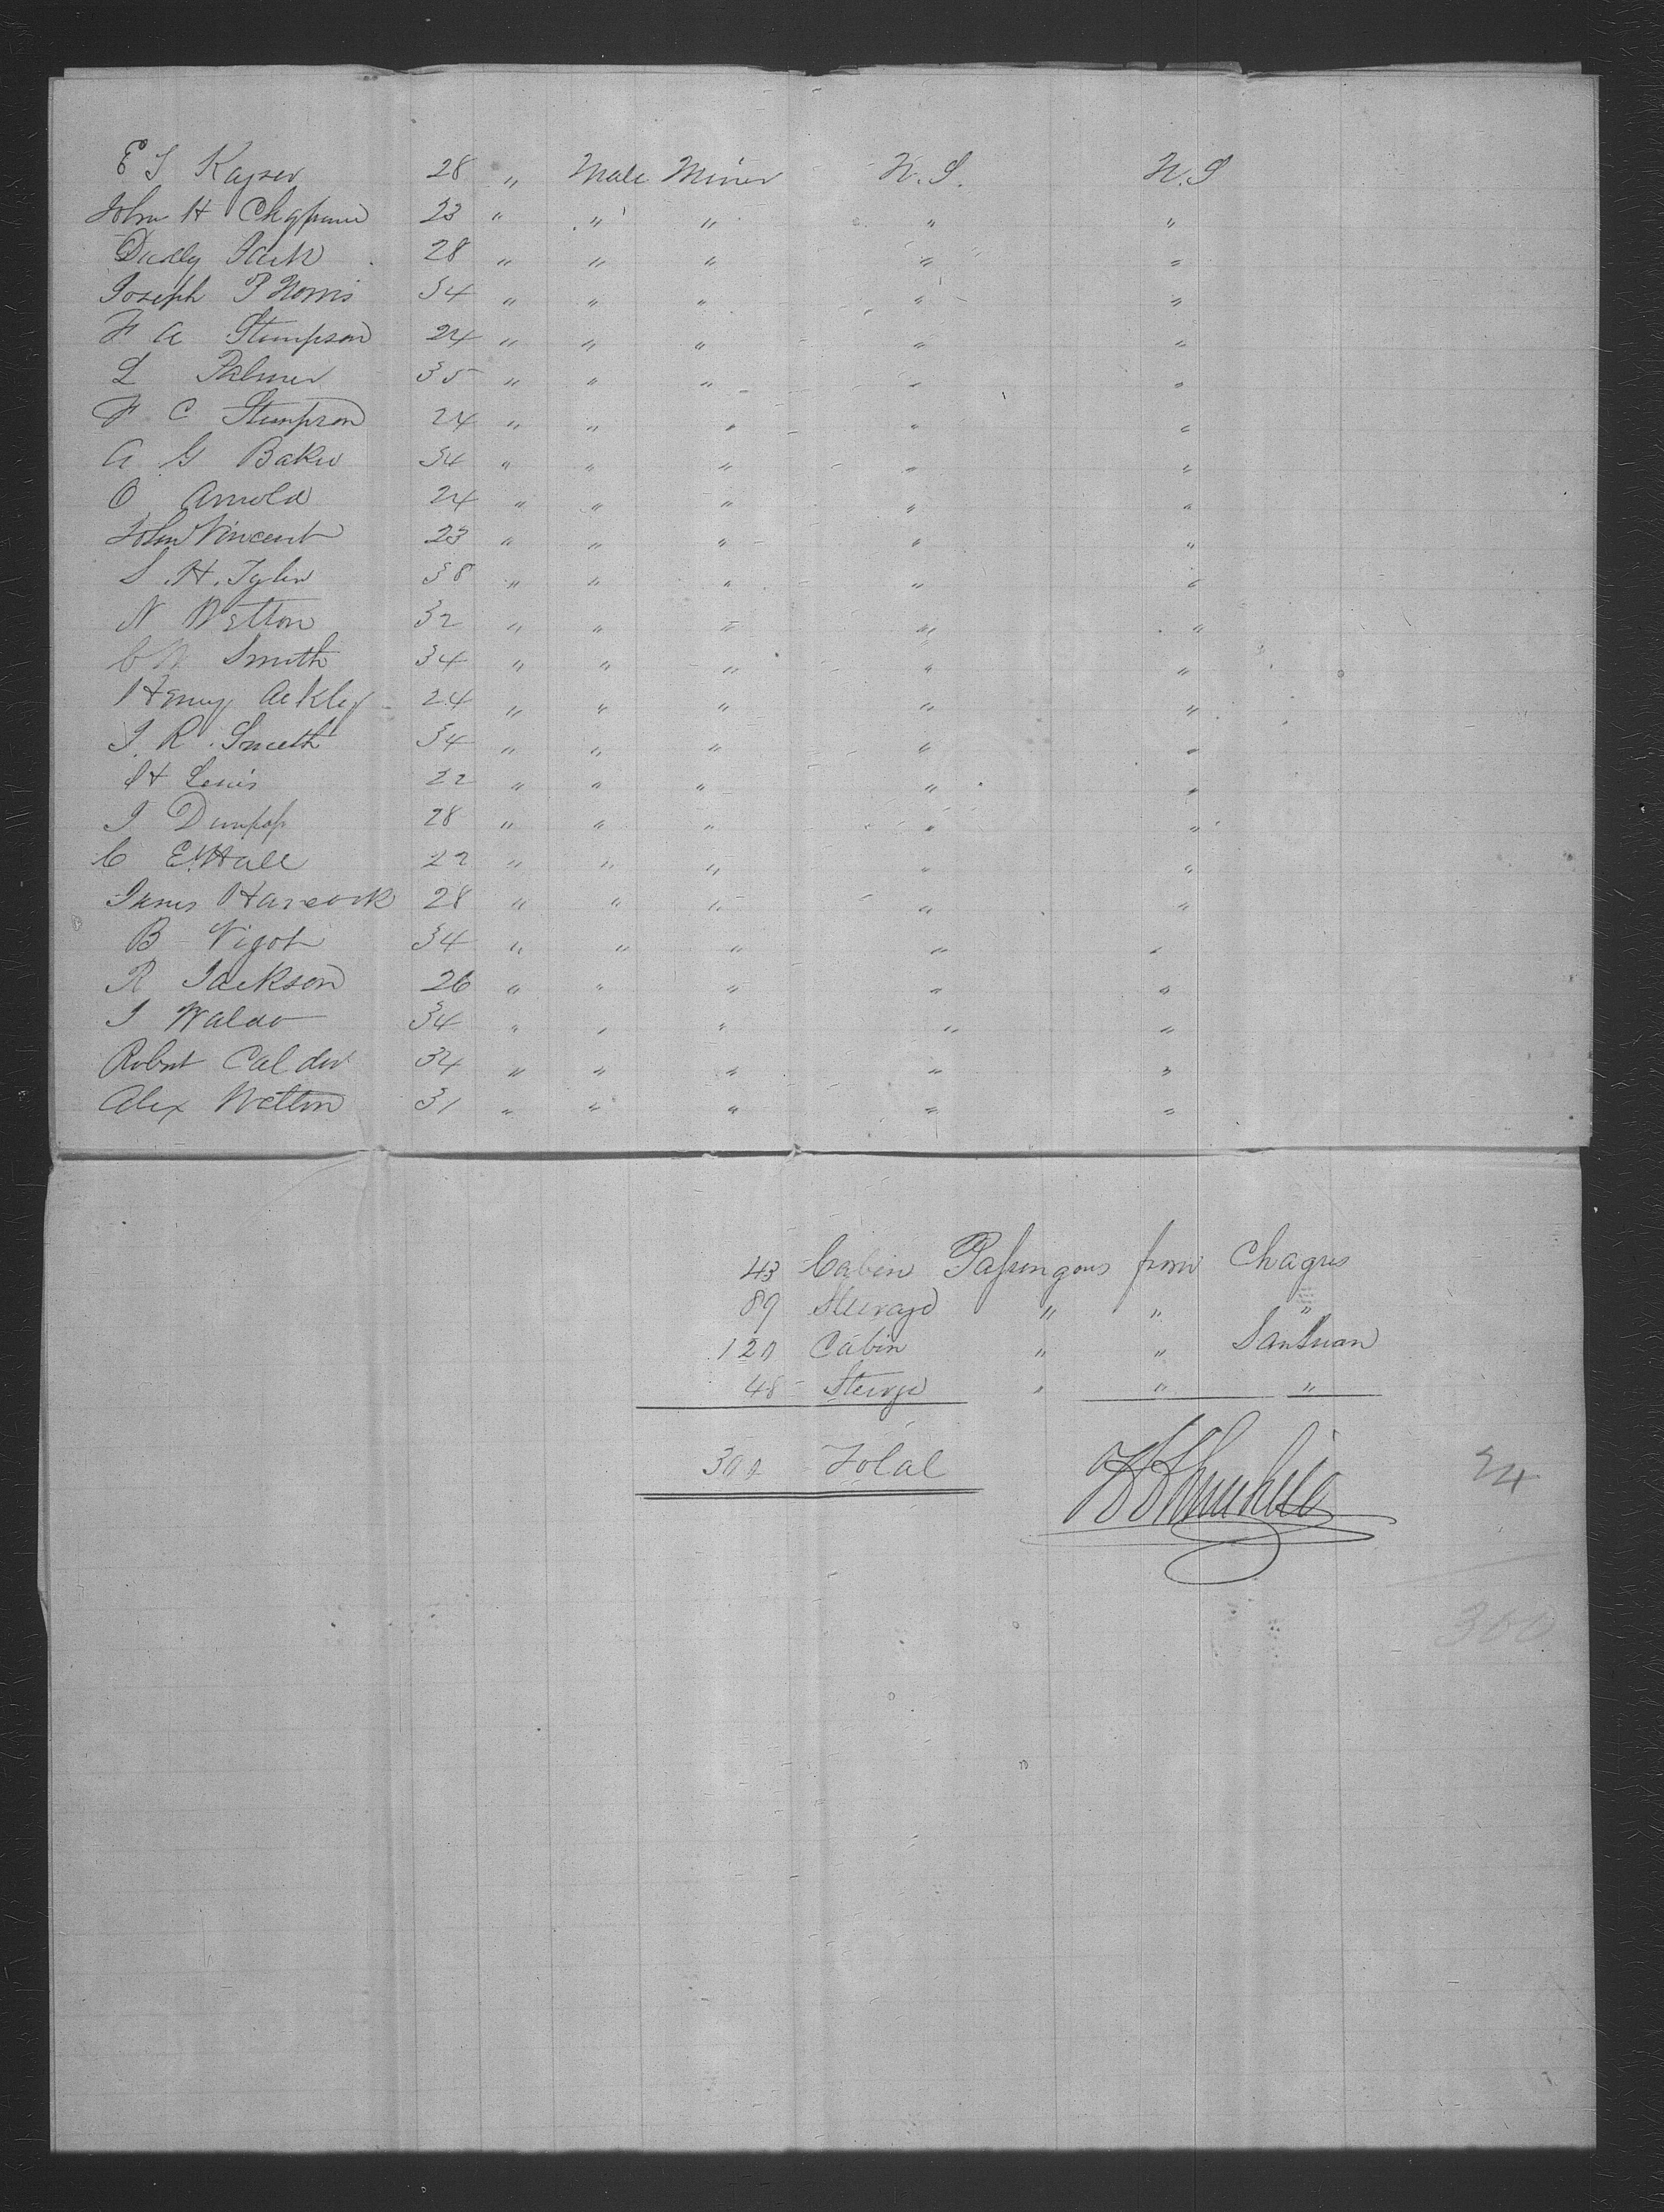 E S Kayser 28 " Male Miner U.S. U.S
John H Chapman 23 " " " " "
Dudly Park 28 " " " " "
Joseph P Norris 34 " " " " "
F A Stimpson 24 " " " " "
L Palmer 35 " " " " "
F C Stimpson 24 " " " " "
A G Baker 34 " " " " "
O Arnold 24 " " " " "
John Vincent 23 " " " " "
S. H. Tyler 38 " " " " "
N Wetton 32 " " " " "
C W Smith 34 " " " " "
Henry Ackley 24 " " " " "
J. R. Smith 34 " " " " "
H Lewis 22 " " " " "
J Dunlop 28 " " " " "
C E. Hall 22 " " " " "
James Hancock 28 " " " " "
B Vigot 34 " " " " "
R Jackson 26 " " " " "
J Waldo 34 " " " " "
Robert Calder 34 " " " " "
Alex Wetton 31 " " " " "
43 Cabin Passengers from Chagres
89 Steerage " " "
120 Cabin " " San Juan
48 Steerge " " "
300 Total
24
300